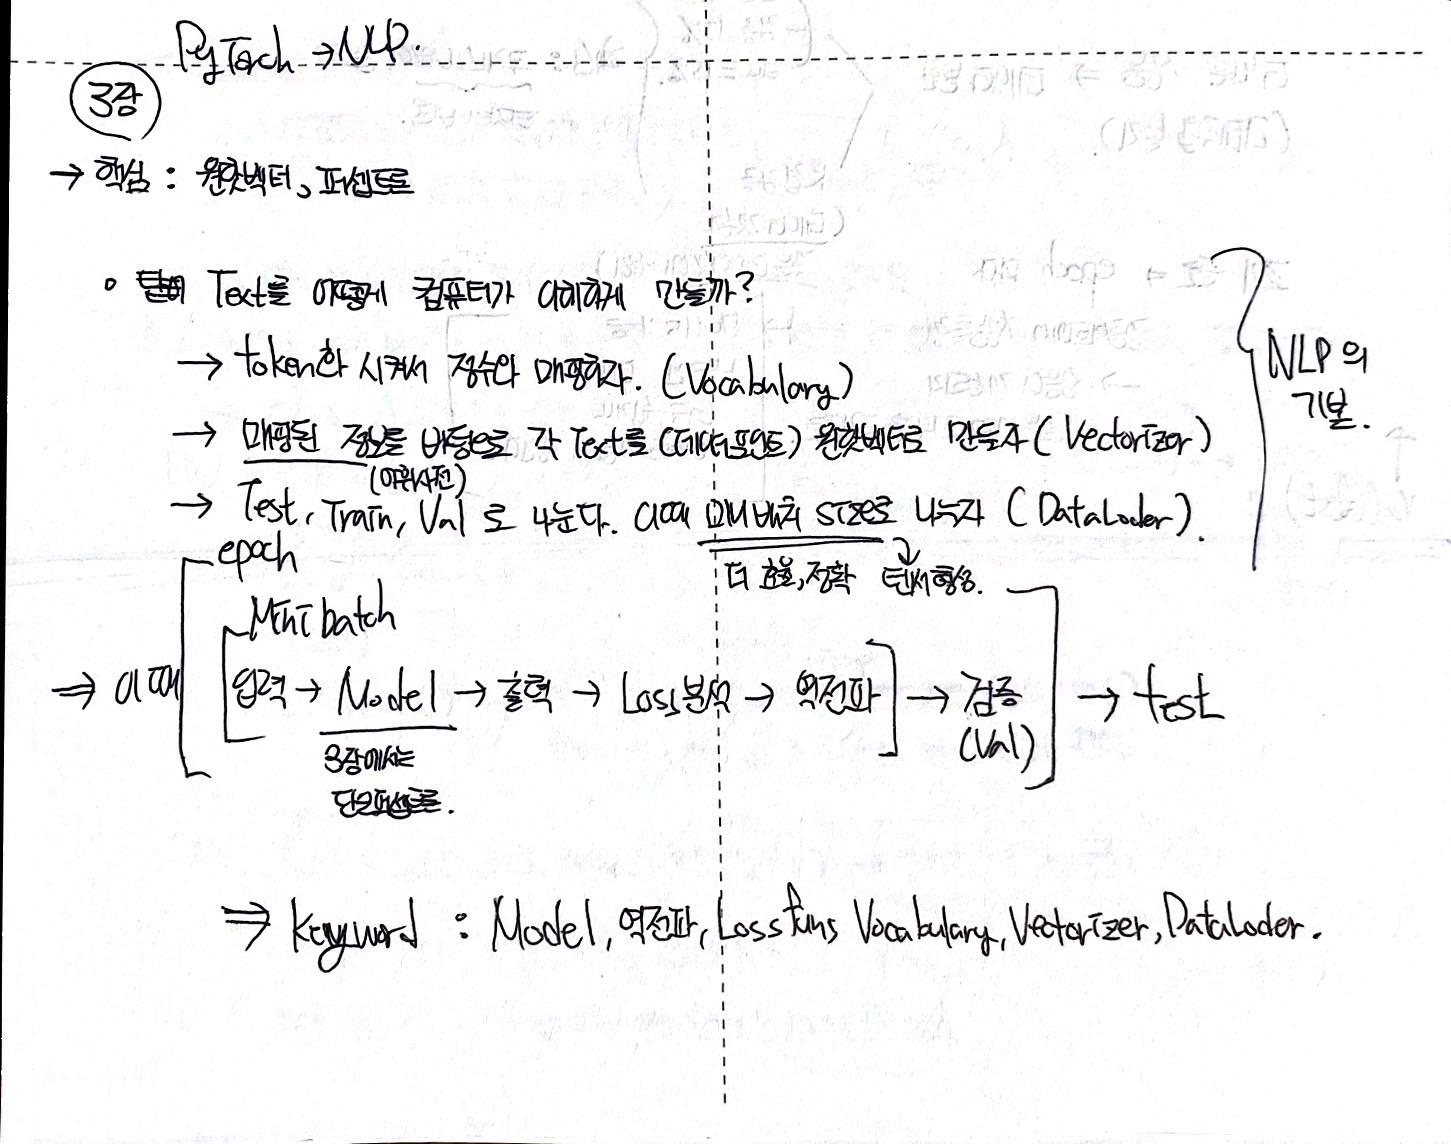 PyTorch → NLP.
3장
→ 핵심 : 원핫벡터, 퍼셉트론
Text를 어떻게 컴퓨터가 이해하게 만들까?
→ token화 시켜서 정수와 매핑하자. (Vocabulary)
→ 매핑된 정보를 바탕으로 각 Text를 (데이터포인트) 원핫벡터로 만들자 (Vectorizer)
(어휘사전)
→ Test, Train, Val 로 나눈다. 이때 미니배치 size로 나누자 (DataLoder).
더 효율, 정확 텐서형성.
NLP의
기본.
epoch
Mini batch
⇒ 이때 입력 → Model → 출력 → Loss분석 → 역전파 → 검증 → test
(Val)
3장에서는
단순퍼셉트론.
⇒ keyword : Model, 역전파, Loss funs Vocabulary, Vectorizer, DataLoder.